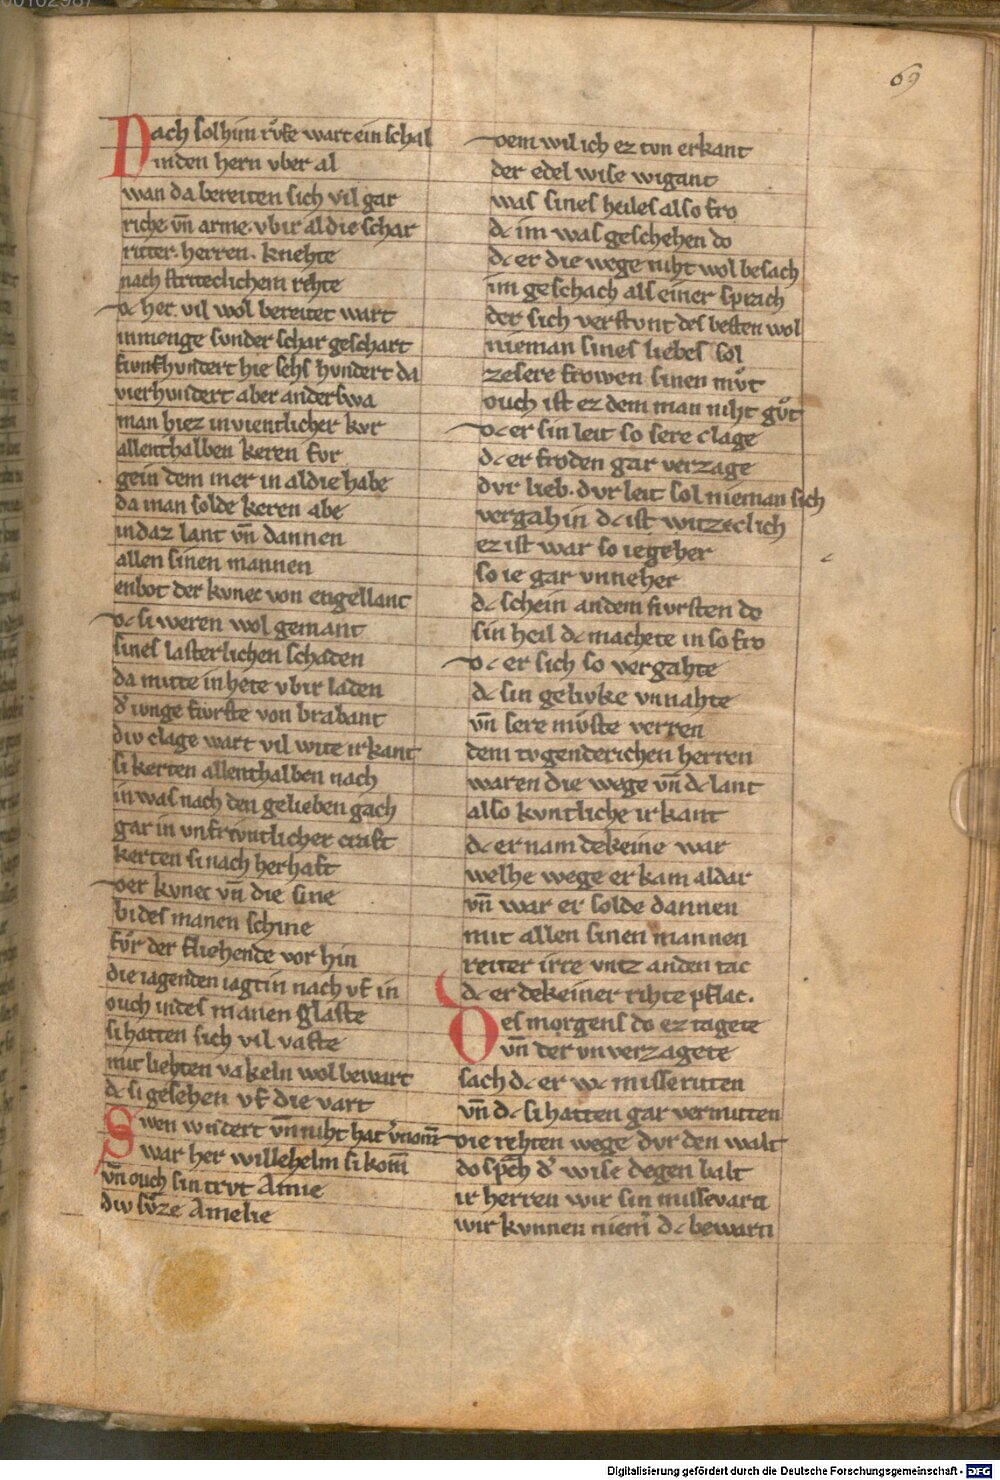 69
Nach solhim rvfe wart ein schal
in den hern vber al
wan da bereiten sich vil gar
riche vn̄ arme. vbir al die schar
ritter. herren. knehte
nach striteclichem rehte
dc her. vil wol bereitet wart
in menge sunder schar geschart
funfhundert hie sehs hvndert da
vierhvndert aber anderswa
man hiez in vientlicher kvr
allenthalben keren fvr
gein dem mer in al die habe
da man solde keren abe
in daz lant vn̄ dannen
allen sinen mannen
enbot der kvnec von engellant
dc si weren wol gemant
sines lasterlichen schaden
da mitte in hete vbir laden
d' ivnge fvrste von brabant
div clage wart vil wite irkant
si kerten allenthalben nach
in was nach den gelieben gach
gar in vnfrivntlicher craft
kerten si nach herhaft
der kvnec vn̄ die sine
bi des manen schine
fv̊r der fliehende vor hin
die iagenden iagtin nach vf in
ouch in des manen glaste
si hatten sich vil vaste
mit liehten vakeln wol bewart
dc si gesehen vf die vart
Swen wndert vn̄ niht hat v'nom̄
war her willehelm si kom̄
vn̄ ouch sin trvt Amie
div svze Amelie
dem wil ich ez tvn erkant
der edel wise wigant
was sines heiles also fro
dc im was geschehen do
dc er die wege niht wol besach
im geschach als einer sprach
der sich verstvnt des besten wol
nieman sines liebes sol
ze sere frowen sinen mv̊t
ouch ist ez dem man niht gv̊t
dc er sin leit so sere clage
dc er froden gar verzage
dvr lieb. dvr leit sol nieman sich
vergahin dc ist witzeclich
ez ist war so ie geher
so ie gar vnneher
dc schein an dem fvrsten do
sin heil dc machete in so fro
dc er sich so vergahte
dc sin gelvke vnnahte
vn̄ sere mv̊ste verren
dem tvgenderichen herren
waren die wege vn̄ dc lant
also kvntliche irkant
dc er nam dekeine war
welhe wege er kam aldar
vn̄ war er solde dannen
mit allen sinen mannen
reit er irre vntz an den tac
dc er dekeiner rihte pflac.
Des morgens do ez tagete
vn̄ der vnverzagete
sach dc er wc misseriten
vn̄ dc si hatten gar vermitten
die rehten wege dvr den walt
do spch d' wise degen balt
ir herren wir sin missevarn
wir kvnnen niem̄ dc bewarn
Digitalisierung gefördert durch die Deutsche Forschungsgemeinschaft - DFG